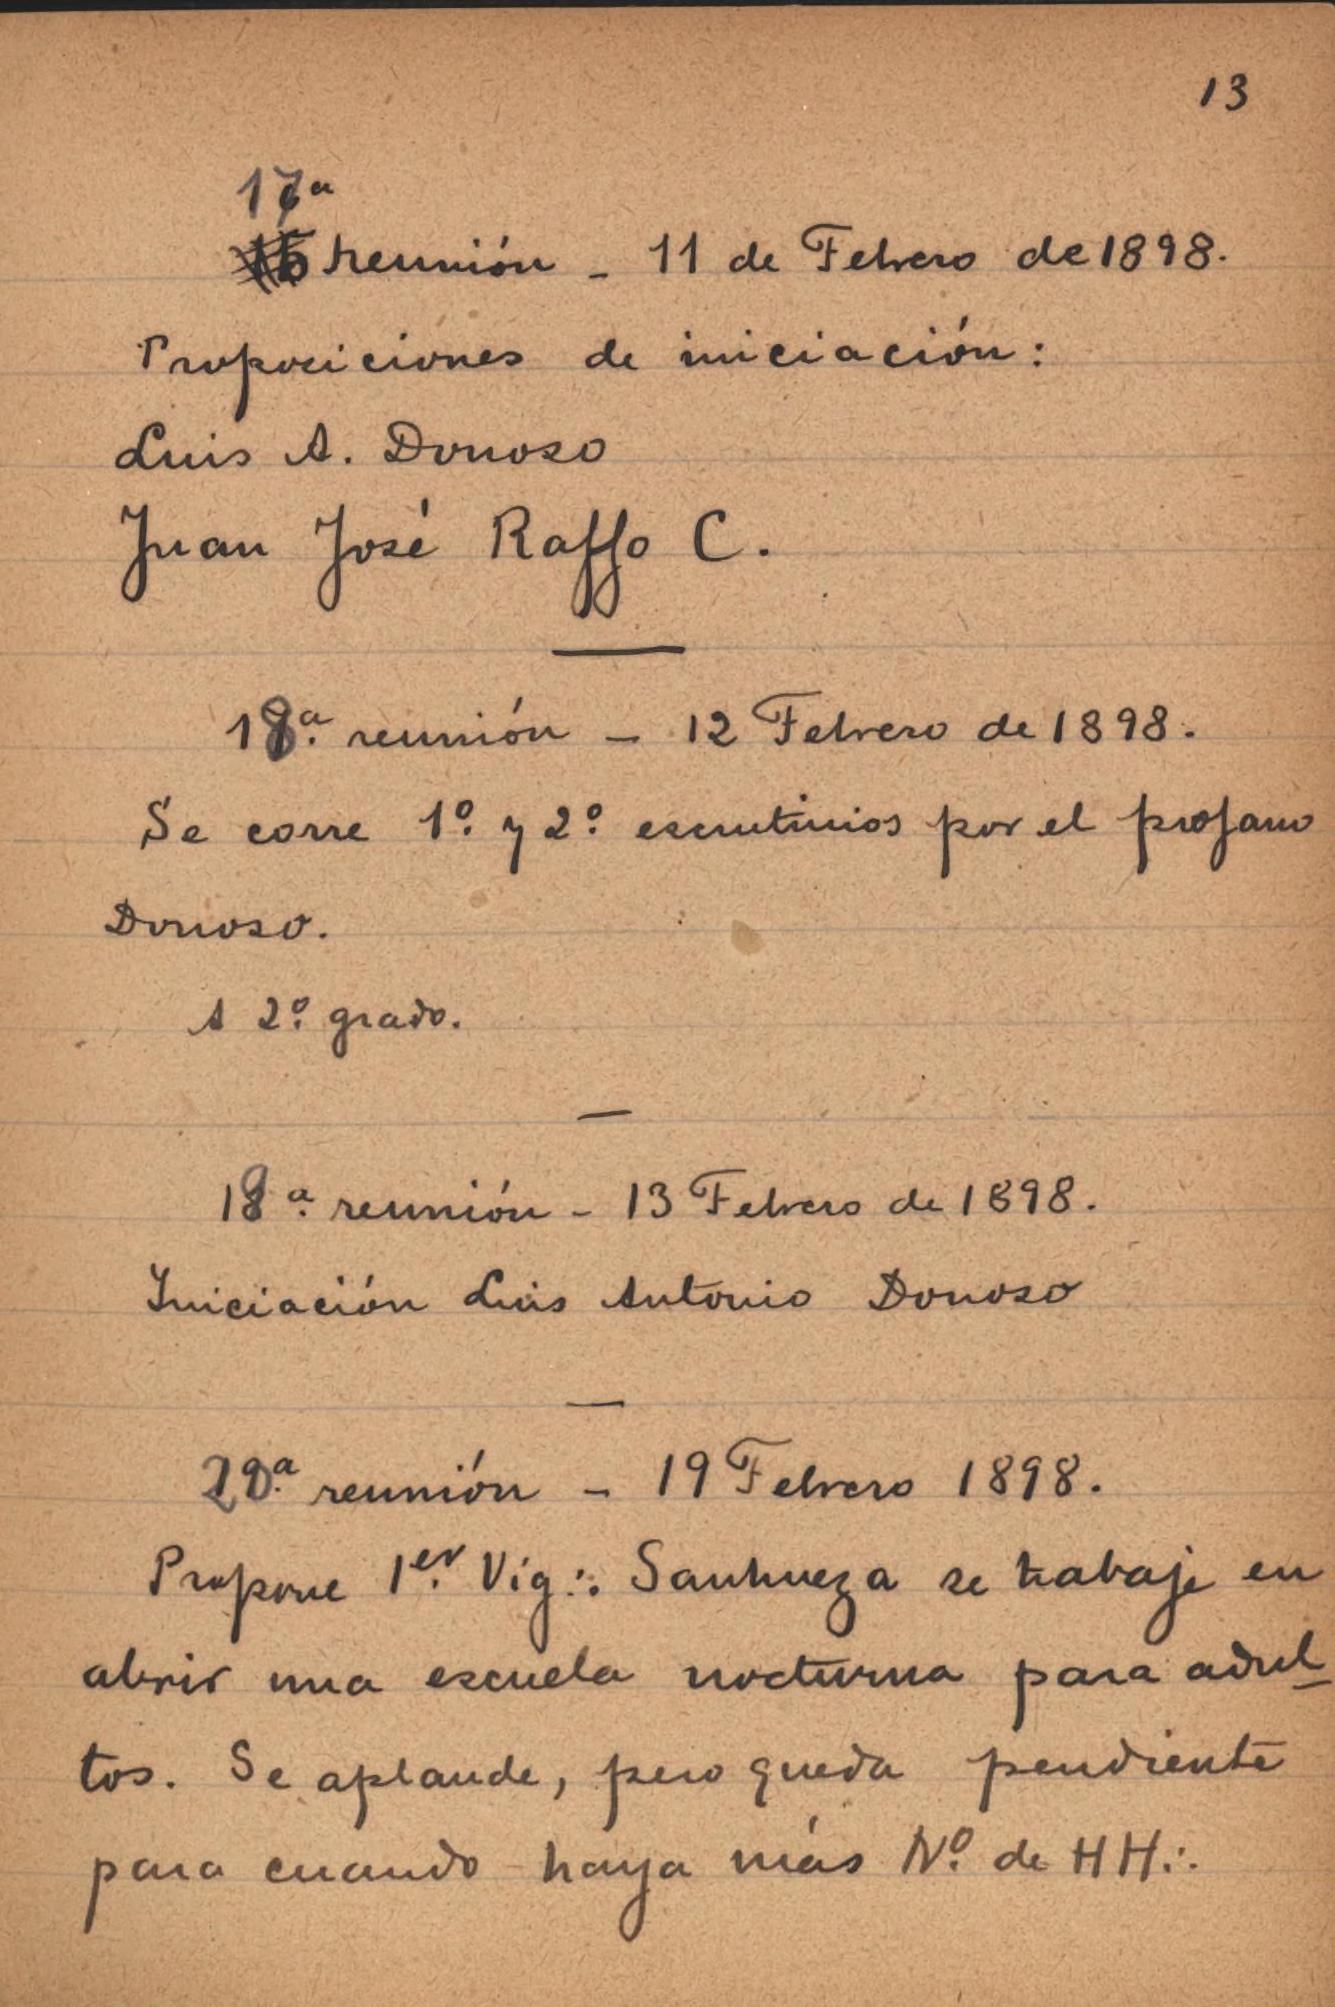 13
17ª
reunión - 11 de Febrero de 1898.
Proposiciones de iniciación:
Luis A. Donoso
Juan José Raffo C.
18ª. reunión - 12 Febrero de 1898.
Se corre 1º. y 2º. escrutinios por el profano
Donoso.
A 2º. grado.
19ª. reunión - 13 Febrero de 1898.
Iniciación Luis Antonio Donoso
20ª. reunión - 19 Febrero 1898.
Propone 1er. Vig∴ Sanhueza se trabaje en
abrir una escuela nocturna para adul-
tos. Se aplaude, pero queda pendiente
para cuando haya más Nº. de HH∴